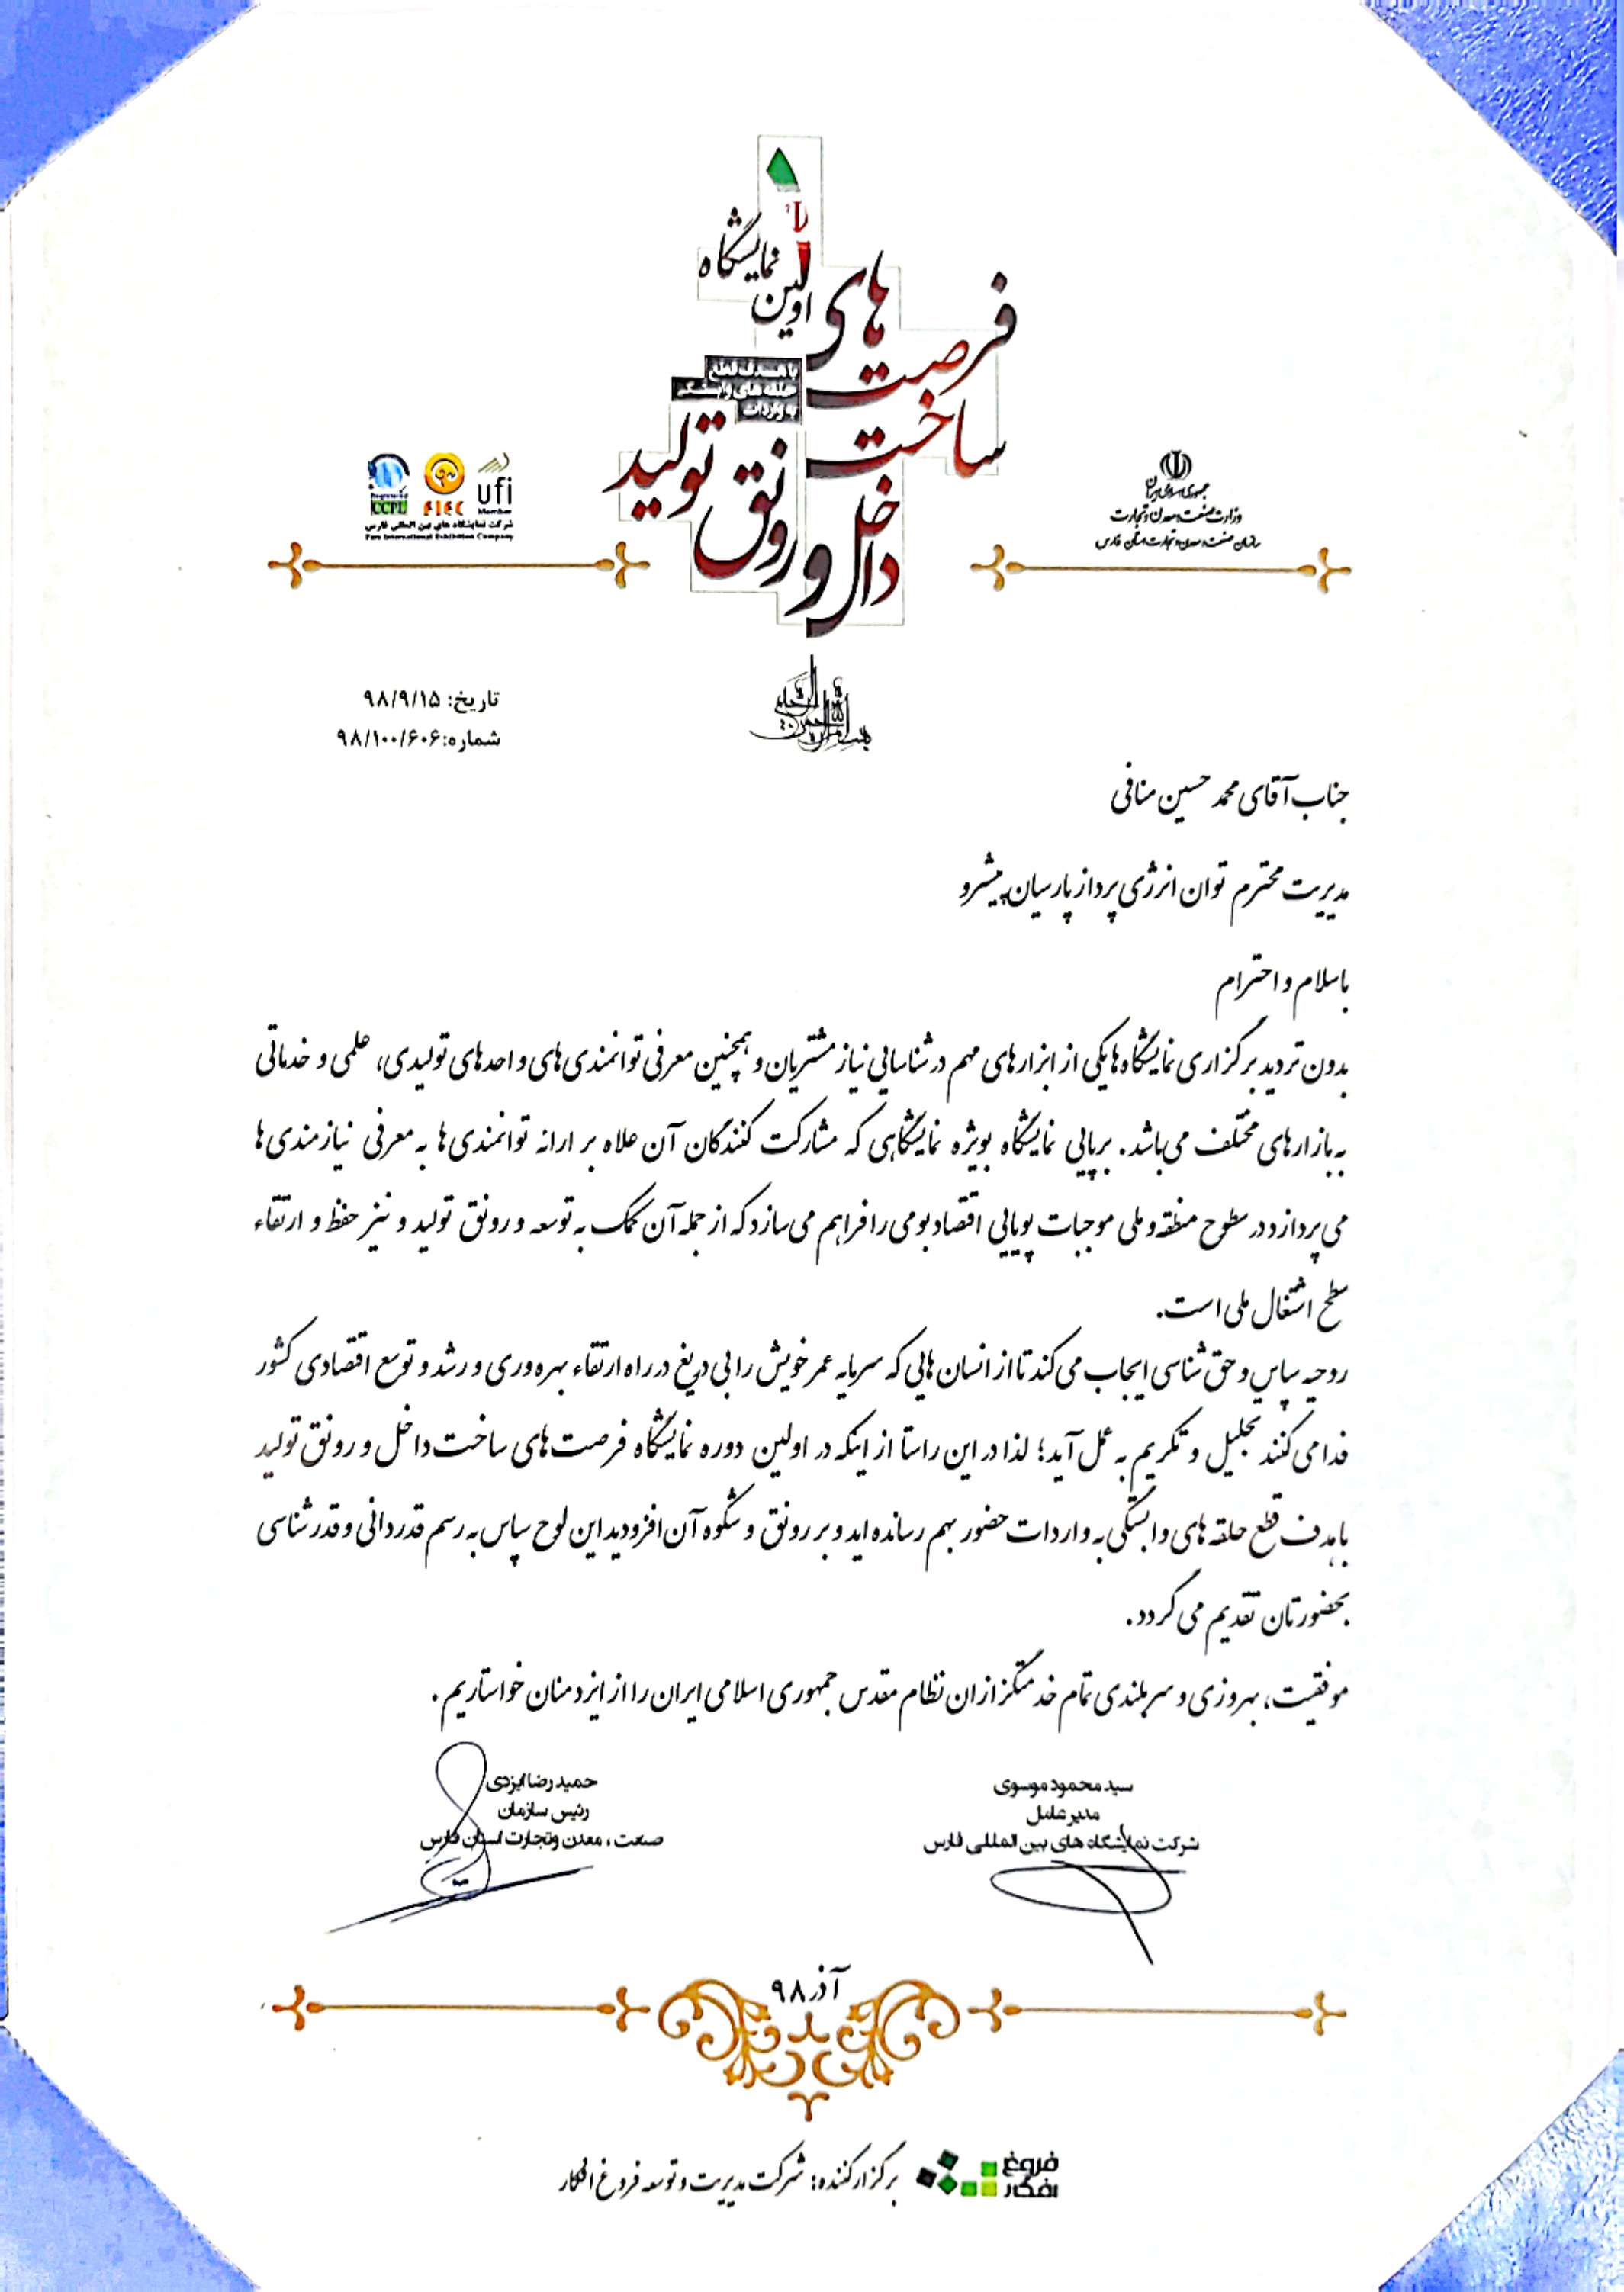 اولین نمایشگاه
فرصت های
ساخت
داخل و رونق تولید
با هدف قطع
حلقه های وابستگی
به واردات
جمهوری اسلامی ایران
وزارت صنعت، معدن و تجارت
سازمان صنعت، معدن و تجارت استان فارس
ufi
Member
FIEC
CCPL
شرکت نمایشگاه های بین المللی فارس
Fars International Exhibition Company
بسم الله الرحمن الرحیم
تاریخ: ۹۸/۹/۱۵
شماره: ۹۸/۱۰۰/۶۰۶
جناب آقای محمد حسین منافی
مدیریت محترم توان انرژی پرداز پارسیان پیشرو
با سلام و احترام
بدون تردید برگزاری نمایشگاه ها یکی از ابزارهای مهم در شناسایی نیاز مشتریان و همچنین معرفی توانمندی های واحدهای تولیدی، علمی و خدماتی
به بازارهای مختلف می باشد. برپایی نمایشگاه بویژه نمایشگاهی که مشارکت کنندگان آن علاه بر ارائه توانمندی ها به معرفی نیازمندی ها
می پردازد در سطوح منطقه و ملی موجبات پویایی اقتصاد بومی را فراهم می سازد که از جمله آن کمک به توسعه و رونق تولید و نیز حفظ و ارتقاء
سطح اشتغال ملی است.
روحیه سپاس و حق شناسی ایجاب می کند تا از انسان هایی که سرمایه عمر خویش را بی دریغ در راه ارتقاء بهره وری و رشد و توسع اقتصادی کشور
فدا می کنند تجلیل و تکریم به عمل آید؛ لذا در این راستا از اینکه در اولین دوره نمایشگاه فرصت های ساخت داخل و رونق تولید
با هدف قطع حلقه های وابستگی به واردات حضور بهم رسانده اید و بر رونق و شکوه آن افزودید این لوح سپاس به رسم قدردانی و قدرشناسی
بحضورتان تقدیم می گردد.
موفقیت، بهروزی و سربلندی تمام خدمتگزاران نظام مقدس جمهوری اسلامی ایران را از ایزد منان خواستاریم.
سید محمود موسوی
مدیر عامل
شرکت نمایشگاه های بین المللی فارس
حمید رضا ایزدی
رئیس سازمان
صنعت، معدن و تجارت استان فارس
آذر ۹۸
فروغ
افکار
برگزار کننده: شرکت مدیریت و توسعه فروغ افکار